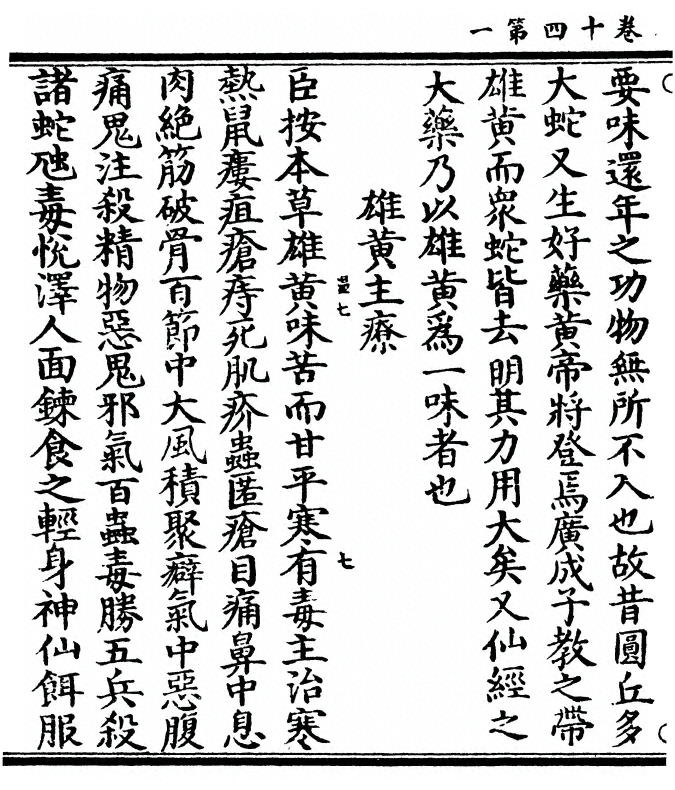 卷十四第一
要味還年之功物無所不入也故昔圓丘多
大蛇又生好藥黃帝將登焉廣成子教之帶
雄黃而衆蛇皆去明其力用大矣又仙經之
大藥乃以雄黃爲一味者也
雄黃主療
臣按本草雄黃味苦而甘平寒有毒主治寒
熱鼠瘻疽瘡痔死肌疥蟲匿瘡目痛鼻中息
肉絶筋破骨百節中大風積聚癖氣中惡腹
痛鬼注殺精物惡鬼邪氣百蟲毒勝五兵殺
諸蛇虺毒悅澤人面鍊食之輕身神仙餌服